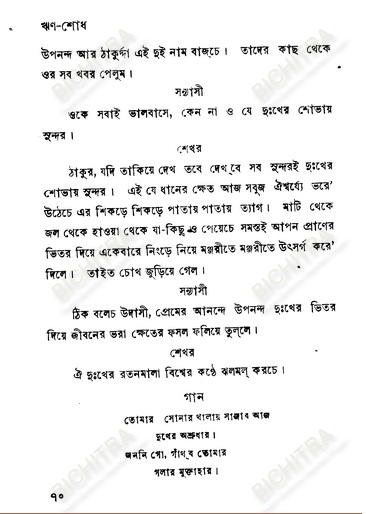 ঋণ-শোধ
উপনন্দ আর ঠাকুর্দ্দা এই দুই নাম বাজ্‌চে। তাদের কাছ থেকে
ওর সব খবর পেলুম।
সন্ন্যাসী
ওকে সবাই ভালবাসে, কেন না ও যে দুঃখের শোভায়
সুন্দর।
শেখর
ঠাকুর, যদি তাকিয়ে দেখ তবে দেখ্‌বে সব সুন্দরই দুঃখের
শোভায় সুন্দর। এই যে ধানের ক্ষেত আজ সবুজ ঐশ্বর্য্যে ভরে’
উঠেচে এর শিকড়ে শিকড়ে পাতায় পাতায় ত্যাগ। মাটি থেকে
জল থেকে হাওয়া থেকে যা-কিছু ও পেয়েচে সমস্তই আপন প্রাণের
ভিতর দিয়ে একেবারে নিংড়ে নিয়ে মঞ্জরীতে মঞ্জরীতে উৎসর্গ করে’
দিলে। তাইত চোখ জুড়িয়ে গেল।
সন্ন্যাসী
ঠিক বলেচ উদাসী, প্রেমের আনন্দে উপনন্দ দুঃখের ভিতর
দিয়ে জীবনের ভরা ক্ষেতের ফসল ফলিয়ে তুল্‌লে।
শেখর
ঐ দুঃখের রতনমালা বিশ্বের কণ্ঠে ঝলমল্‌ করচে।
গান
তোমার সোনার থালায় সাজাব আজ
দুখের অশ্রুধার।
জননি গো, গাঁথ্‌ব তোমার
গলার মুক্তাহার।
৭০
BICHITRA
BICHITRA
BICHITRA
BICHITRA
BICHITRA
BICHITRA